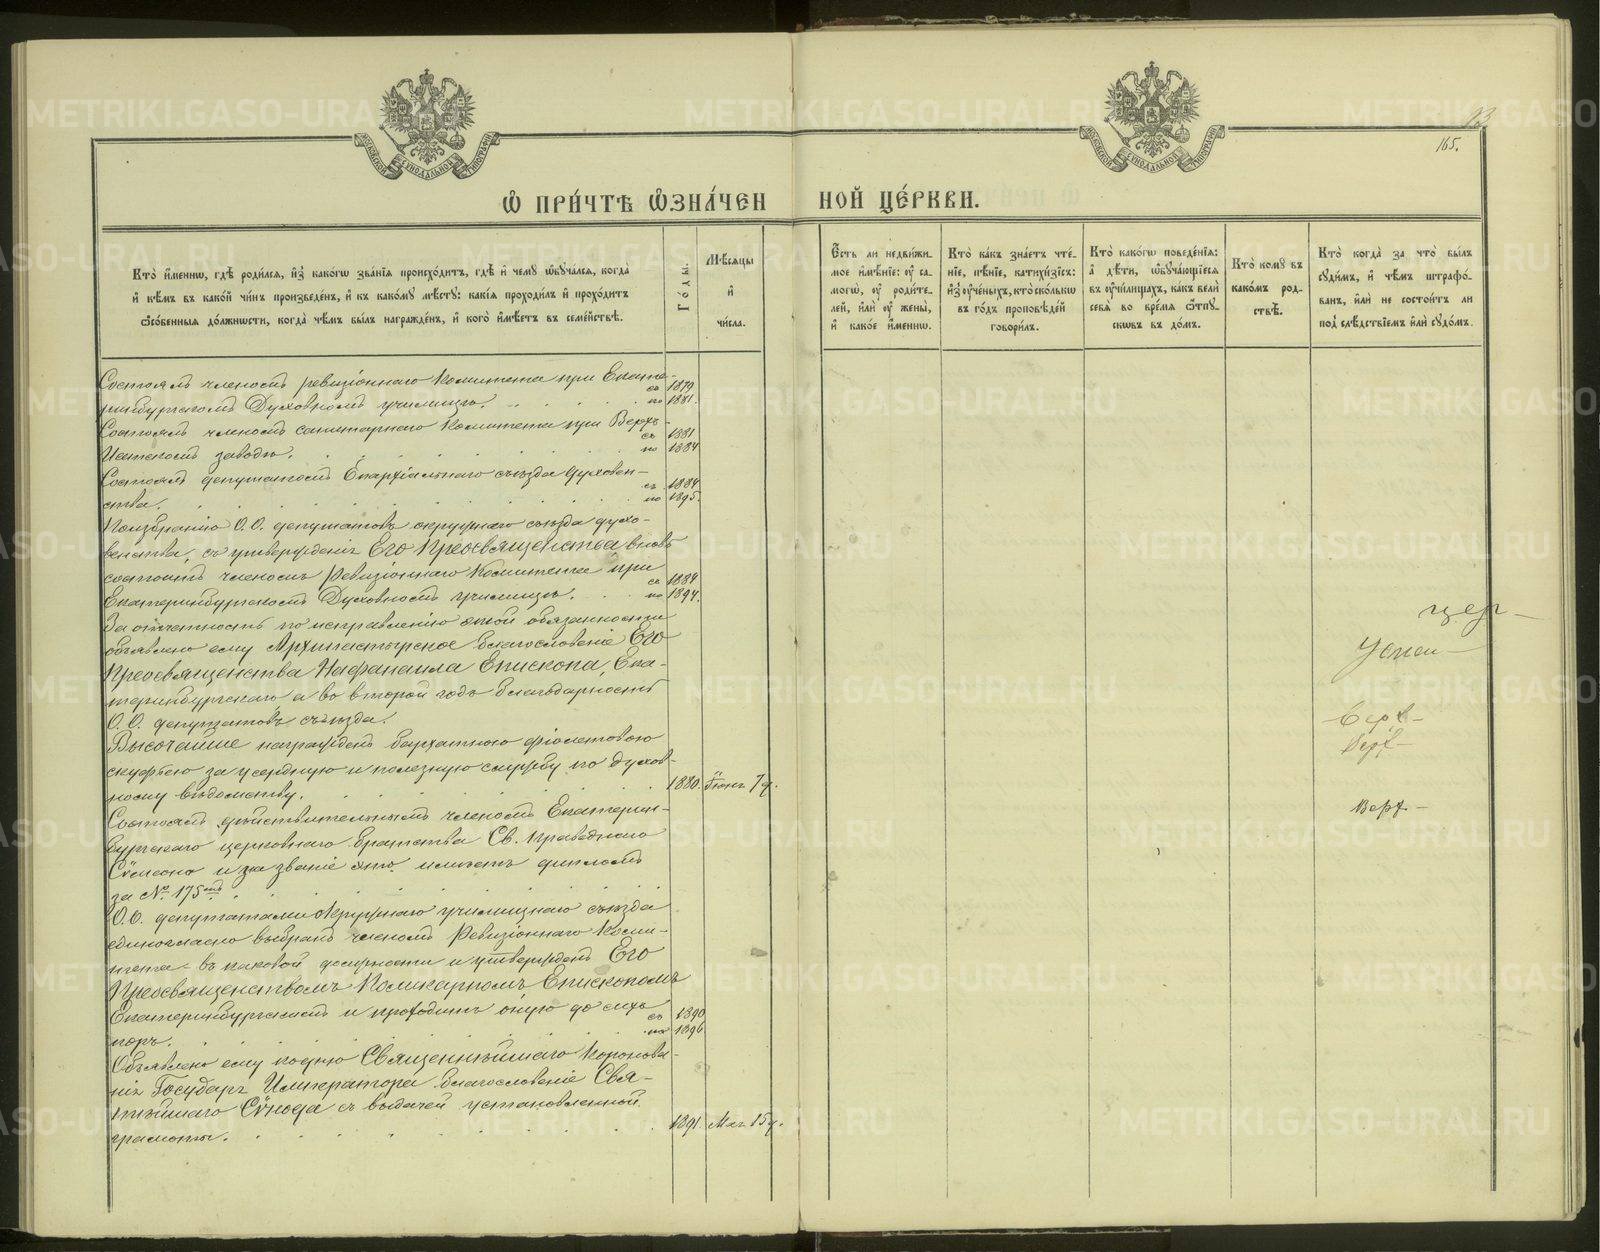 165.
Ѡ ПРИ́ЧТѢ Ѡ҆ЗНА́ЧЕННОЙ ЦЕ́РКВИ.
Кто̀ и҆́меннѡ, гдѣ̀ роди́лсѧ, и҆з̾ како́гѡ зва́нїѧ происхо́дитъ, гдѣ̀ и҆ чемꙋ̀ ѡ҆бꙋча́лсѧ, когда̀
и҆ кѣ́мъ въ како́й чи́нъ произведе́нъ, и҆ къ како́мꙋ мѣ́стꙋ: какі̑ѧ проходи́лъ и҆ прохо́дитъ
ѡ҆со́бенныѧ до́лжнѡсти, когда̀ чѣ́мъ бы́лъ награжде́нъ, и҆ кого̀ и҆мѣ́етъ въ семе́йствѣ.
Го́ды.
Мѣ́сѧцы
и҆
чи́сла.
Е҆́сть ли недви́жи-
мое и҆мѣ́нїе: ᲂу҆ са-
могѡ̀, ᲂу҆ роди́те-
лей, и҆лѝ ᲂу҆ жены̀,
и҆ како́е и҆́меннѡ.
Кто̀ ка́къ зна́етъ чте́-
нїе, пѣ́нїе, катихи́зїсъ:
и҆з̾ ᲂу҆че́ныхъ, кто̀ ско́лькѡ
въ го́дъ проповѣ́дей
говори́лъ.
Кто̀ како́гѡ поведе́нїѧ:
а҆ дѣ́ти, ѡ҆бꙋча́ющїесѧ
въ ᲂу҆чи́лищахъ, ка́къ велѝ
себѧ̀ во вре́мѧ ѿпꙋ-
скѡвъ въ до́мъ.
Кто̀ комꙋ̀ въ
како́мъ род-
ствѣ̀.
Кто̀ когда̀ за что̀ бы́лъ
сꙋди́мъ, и҆ чѣ́мъ штрафо́-
ванъ, и҆лѝ не состои́тъ ли
под̾ слѣ́дствїемъ и҆лѝ сꙋдо́мъ.
Состоялъ членомъ ревизіоннаго Комитета при Екате-
ринбургскомъ Духовномъ училищѣ. съ 1879 по 1881.
Состоялъ членомъ санитарнаго Комитета при Верхъ-
Исетскомъ заводѣ. съ 1881 по 1884
Состоялъ депутатомъ Епархіальнаго съѣзда духовен-
ства. съ 1884 по 1895.
По избранію О.О. депутатовъ окружнаго съѣзда духо-
венства, съ утвержденія Его Преосвященства вновь
состоитъ членомъ Ревизіоннаго Комитета при
Екатеринбургскомъ Духовномъ училищѣ. съ 1884 по 1894.
За отчетность по исправленію этой обязанности
объявлено ему Архипастырское благословеніе Его
Преосвященства Нафанаила Епископа Ека-
теринбургскаго, а во второй годъ благодарность
О.О. депутатовъ съѣзда.
Высочайше награжденъ бархатною фіолетовою
скуфьею за усердную и полезную службу по духов-
ному вѣдомству. 1880. Іюня 7 д.
Состоялъ дѣйствительнымъ членомъ Екатерин-
бургскаго церковнаго братства Св. Праведнаго
Сѵмеона и за званіе это имѣетъ дипломъ
за № 175мъ
О.О. депутатами Окружнаго училищнаго съѣзда
единогласно выбранъ членомъ Ревизіоннаго Коми-
тета - въ каковой должности и утвержденъ Его
Преосвященствомъ Поликарпомъ Епископомъ
Екатеринбургскимъ и проходитъ оную до сихъ
поръ. съ 1890 по 1896
Объявлено ему ко дню Священнѣйшаго Коронова-
нія Государя Императора благословеніе Свя-
тѣйшаго Сѵнода съ выдачей установленной
грамоты. 1891. Мая 15 д.
цер-
Успен-
Верх-
Верх-
Верх-